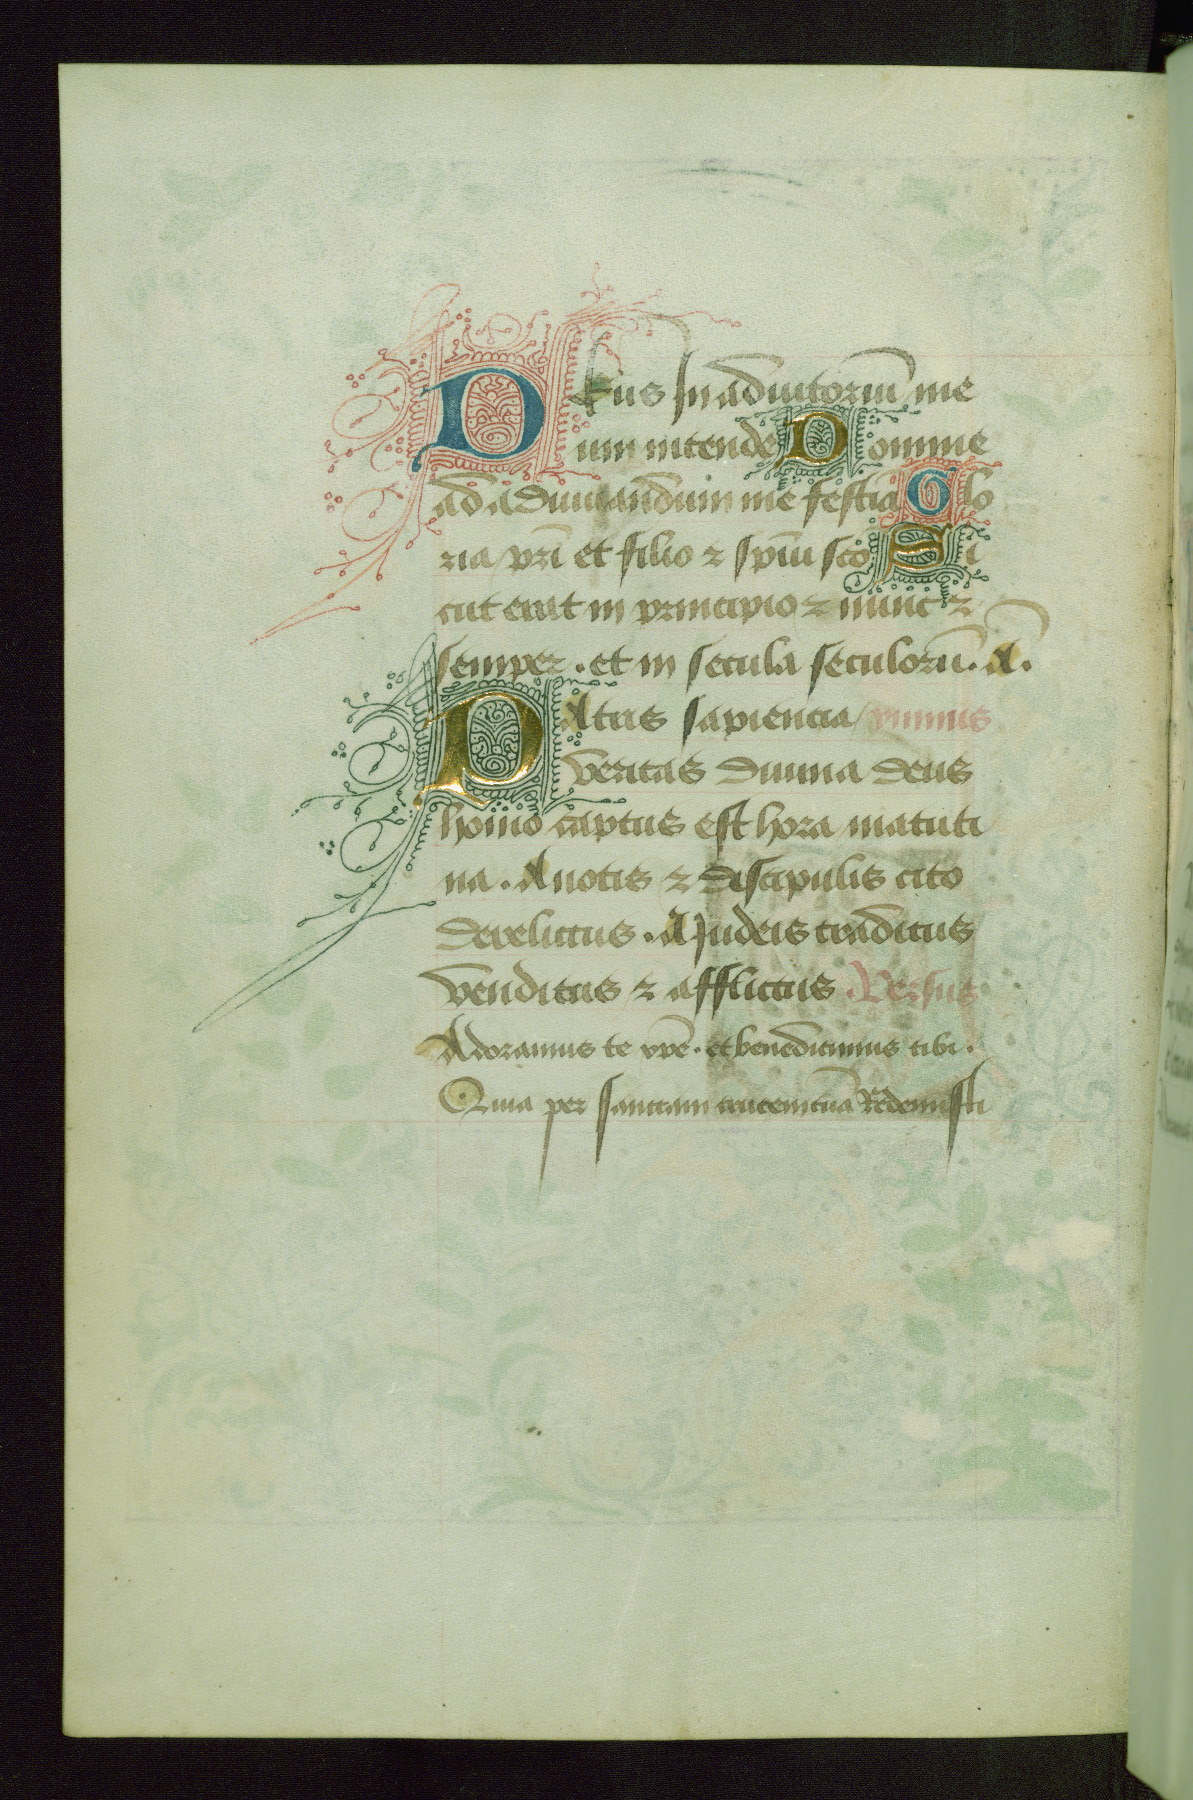 DEus In adiutoriū me
um intende Domine
ad adiuuandum me festiā Glo
ria pr̄i et filio ⁊ spiūi sc̄o Si
cut erat in principio ⁊ nunc ⁊
semper . et in secula seculorū . A .
PAtris sapiencia / ymnus
veritas diuina deus
homo captus est hora matuti
na . A notis ⁊ discipulis cito
derelictus . A Judeis traditus
venditus ⁊ afflictus . Versus
Adoramus te xpē . et benedicimus tibi .
Quia per sanctam crucem tuā Redemisti